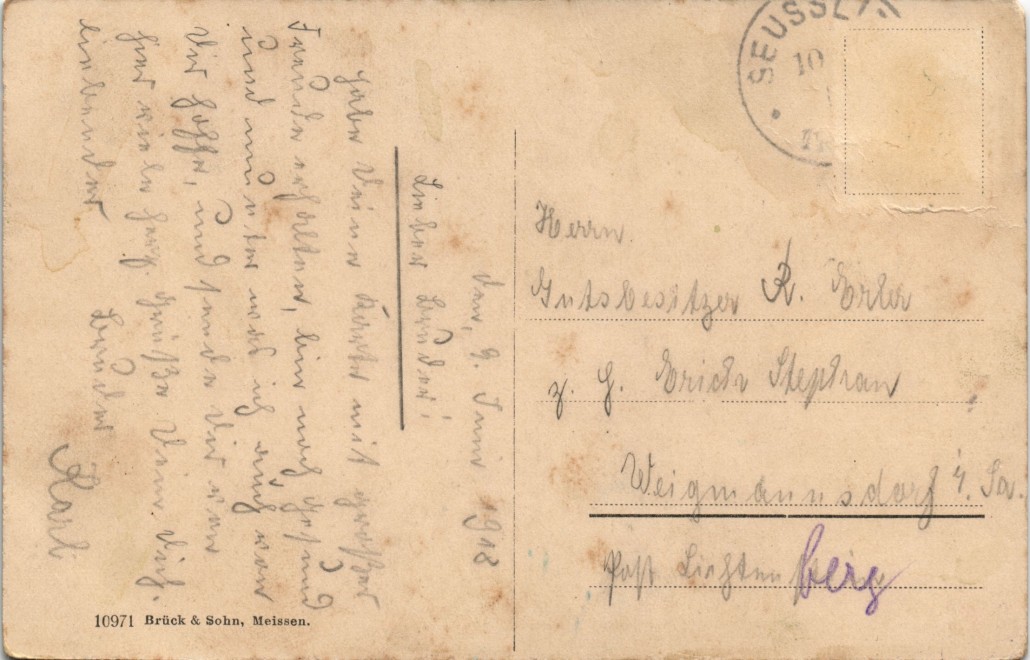 den, 9. Juni 1918
Lieber Bruder!
Habe Deine Karte mit großer
Freude erhalten, bin noch gesund
und munter was ich auch von
Dir hoffe, und sende Dir von
hier viele herzl. Grüße Dein Dich
liebender Bruder
Karl
SEUSSLITZ
10
Herrn
Gutsbesitzer R. Erler
z. H. Erich Stephan
Weigmannsdorf i. Sa.
Post Lichtenberg
10971 Brück & Sohn, Meissen.